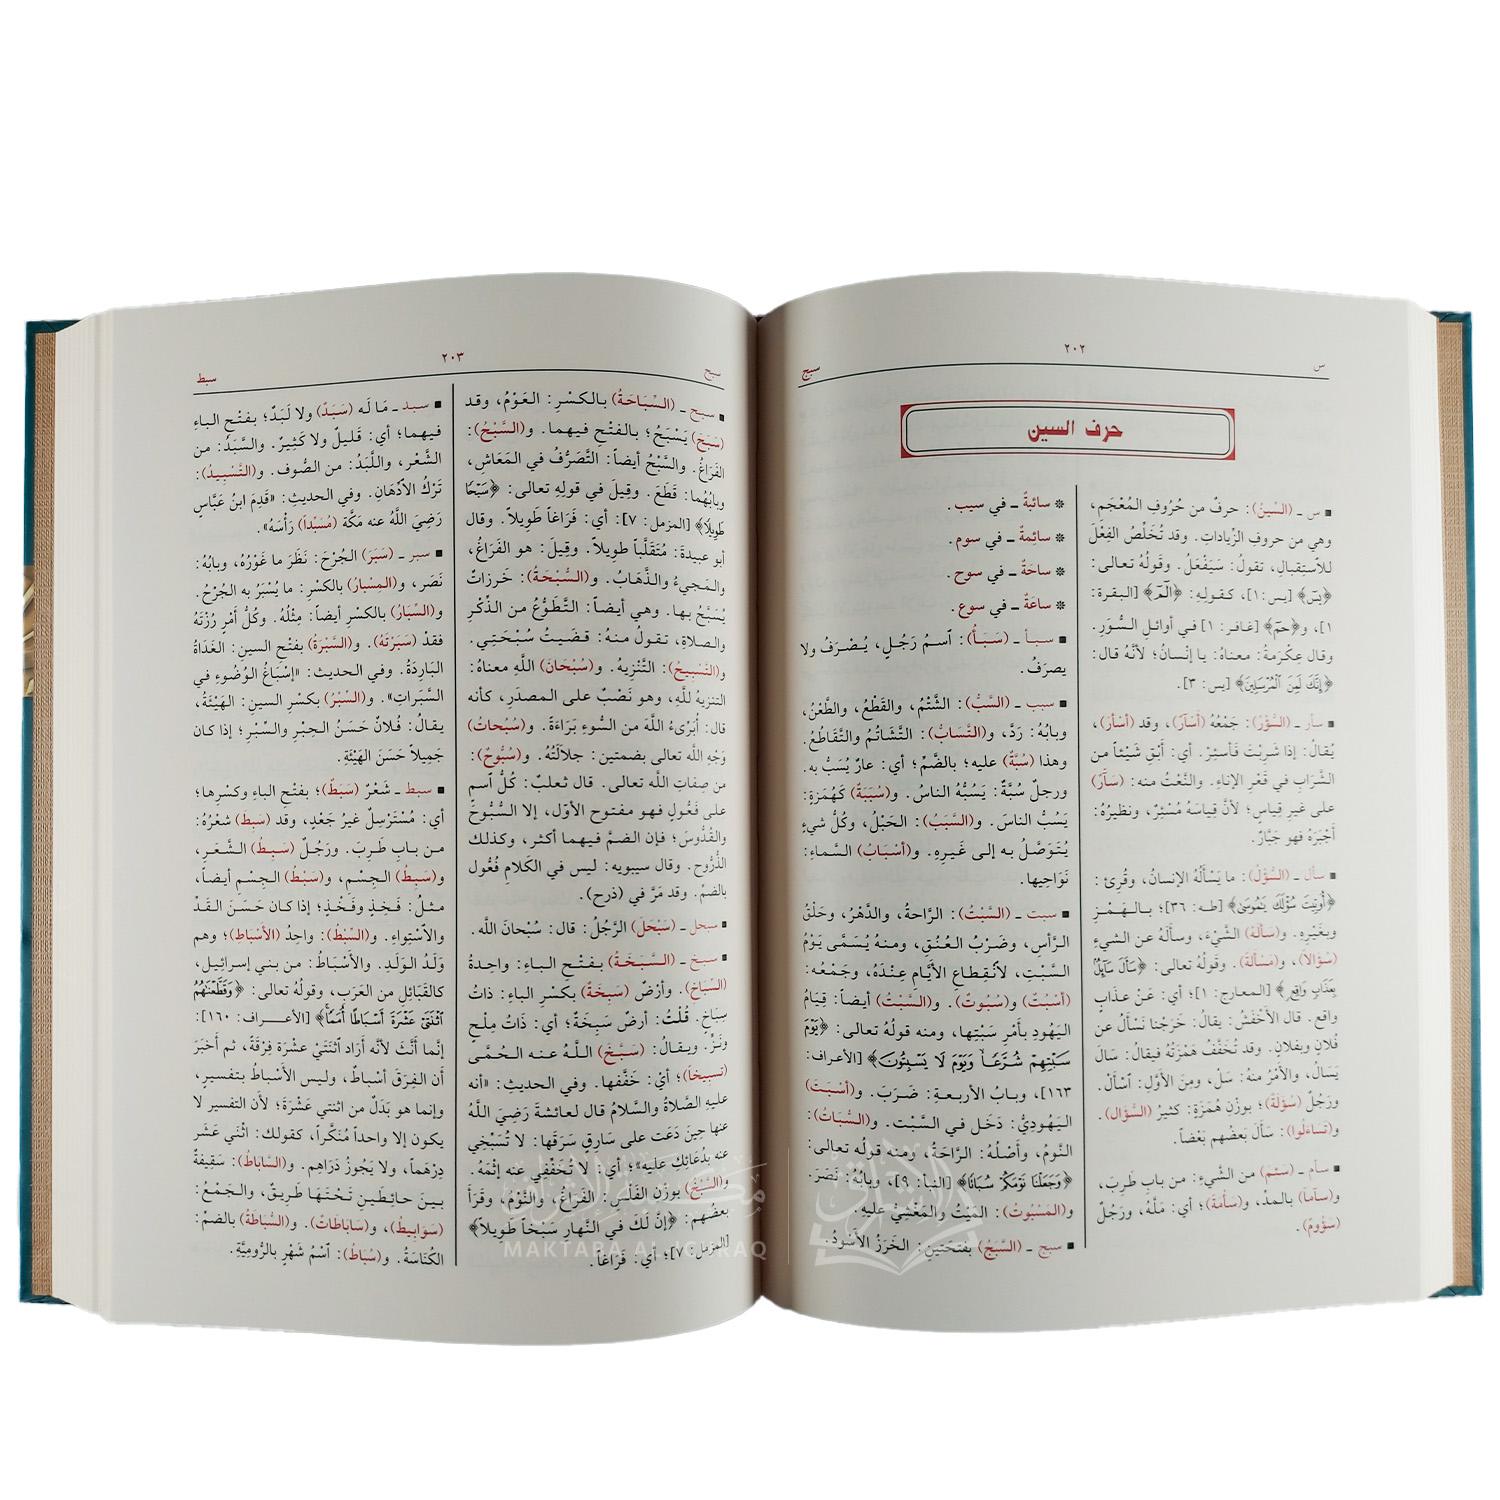 س
٢٠٢
سبج
حرف السين
▪ س ـ (السِّينُ): حرفٌ من حُرُوفِ المُعْجَمِ،
وهي من حروفِ الزِّياداتِ. وقد تُخَلِّصُ الفِعْلَ
للاستِقبالِ، تقولُ: سَيَفْعَلُ. وقَولُهُ تعالى:
﴿يسٓ﴾ [يس: ١]، كـقـولِـهِ: ﴿الٓمٓ﴾ [البقرة:
١]، و﴿حمٓ﴾ [غافر: ١] في أوائلِ السُّوَرِ.
وقال عِكْرِمَةُ: معناهُ: يا إنْسانُ؛ لأنَّهُ قال:
﴿إِنَّكَ لَمِنَ الْمُرْسَلِينَ﴾ [يس: ٣].
▪ سأر ـ (السُّؤْرُ): جَمْعُهُ (أَسآرٌ)، وقد (أَسْأَرَ)،
يُقالُ: إذا شَرِبْتَ فَأَسْئِرْ. أي: أَبْقِ شَيْئاً من
الشَّرَابِ في قَعْرِ الإناءِ. والنَّعْتُ منه: (سَآرٌ)
على غيرِ قِياسٍ؛ لأنَّ قِياسَهُ مُسْئِرٌ، ونظيرُهُ:
أَجْبَرَهُ فهو جَبَّارٌ.
▪ سأل ـ (السُّؤْلُ): ما يَسْأَلُهُ الإنسانُ، وقُرِئ:
﴿أُوتِيتَ سُؤْلَكَ يَمُوسَى﴾ [طه: ٣٦]؛ بـالـهَـمْـزِ
وبغَيْرِهِ. و(سَأَلَهُ) الشَّيْءَ، وسأَلَهُ عن الشيءِ
(سُؤَالاً)، و(مَسْأَلَةً). وقَولُهُ تعالى: ﴿سَأَلَ سَآئِلٌ
بِعَذَابٍ وَاقِعٍ﴾ [المعارج: ١]؛ أي: عَنْ عذابٍ
واقعٍ. قال الأخْفَشُ: يقالُ: خَرَجْنا نَسْأَلُ عن
فُلانٍ وبفلانٍ. وقد تُخَفَّفُ هَمْزَتُهُ فيقالُ: سَالَ
يَسَالُ، والأَمْرُ منْهُ: سَلْ، ومِنَ الأوَّلِ: اسْأَلْ.
ورَجُلٌ (سُؤَلَةٌ)؛ بوَزْنِ هُمَزَةٍ: كثيرُ (السُّؤَالِ).
و(تَساءَلُوا): سَأَلَ بَعْضُهم بَعْضاً.
▪ سأم ـ (سَئِمَ) من الشَّيءِ: من بابِ طَرِبَ،
و(سَآماً) بالمدِّ، و(سَآمَةً)؛ أي: مَلَّهُ، ورَجُلٌ
(سَؤُومٌ).
* سائبةٌ ـ في سيب.
* سائمةٌ ـ في سوم.
* ساحَةٌ ـ في سوح.
* ساعَةٌ ـ في سوع.
▪ سبأ ـ (سَبَأٌ): اسمُ رَجُلٍ، يُصْرَفُ ولا
يصرَفُ.
▪ سبب ـ (السَّبُّ): الشَّتْمُ، والقَطْعُ، والطَّعْنُ،
وبابُهُ: رَدَّ، و(التَّسَابُّ): التَّشاتُمُ والتَّقَاطُعُ.
وهذا (سُبَّةٌ) عليه؛ بالضَّمِّ؛ أي: عارٌ يُسَبُّ به.
ورجلٌ سُبَّةٌ: يَسُبُّهُ الناسُ. و(سُبَبَةٌ) كَهُمَزَةٍ:
يَسُبُّ الناسَ. و(السَّبَبُ): الحَبْلُ، وكُلُّ شيءٍ
يُتَوَصَّلُ به إلى غَيرِهِ. و(أَسْبَابُ) السَّماءِ:
نَوَاحِيها.
▪ سبت ـ (السَّبْتُ): الرَّاحةُ، والدَّهْرُ، وحَلْقُ
الرَّأسِ، وضَرْبُ العُنُقِ، ومنهُ يُسَمَّى يَوْمُ
السَّبْتِ، لانْقِطاعِ الأيَّامِ عِنْدَهُ، وجَمْعُهُ:
(أَسْبُتٌ) و(سُبُوتٌ). و(السَّبْتُ) أيضاً: قِيَامُ
اليَهُودِ بأَمْرِ سَبْتِها، ومنه قولُهُ تعالى: ﴿يَوْمَ
سَبْتِهِمْ شُرَّعًا وَيَوْمَ لَا يَسْبِتُونَ﴾ [الأعراف:
١٦٣]، وبـابُ الأربعـةِ: ضَرَبَ. و(أَسْبَتَ)
اليَهودِيُّ: دَخَلَ في السَّبْتِ. و(السُّبَاتُ):
النَّومُ، وأَصْلُهُ: الرَّاحَةُ، ومنه قولُه تعالى:
﴿وَجَعَلْنَا نَوْمَكُمْ سُبَاتًا﴾ [النبأ: ٩]، وبابُهُ: نَصَرَ.
و(المَسْبُوتُ): المَيْتُ والمَغْشِيُّ عليهِ.
▪ سبج ـ (السَّبَجُ) بفتحتينِ: الخَرَزُ الأَسْودُ.
سبح
٢٠٣
سبط
▪ سبح ـ (السِّبَاحَةُ) بالكسْرِ: العَوْمُ، وقد
(سَبَحَ) يَسْبَحُ؛ بالفتْحِ فيهما. و(السَّبْحُ):
الفَرَاغُ. والسَّبْحُ أيضاً: التَّصَرُّفُ في المَعَاشِ،
وبابُهُما: قَطَعَ. وقِيلَ في قولِهِ تعالى: ﴿سَبْحًا
طَوِيلًا﴾ [المزمل: ٧]: أي: فَرَاغاً طَويلاً. وقال
أبو عبيدةَ: مُتَقَلَّباً طويلاً. وقِيلَ: هو الفَرَاغُ،
والمَجيءُ والذَّهابُ. و(السُّبْحَةُ): خَرزاتٌ
يُسَبَّحُ بها. وهي أيضاً: التَّطَوُّعُ من الذِّكْرِ
والصلاةِ، تقولُ منهُ: قضَيتُ سُبْحَتِي.
و(التَّسْبِيحُ): التَّنْزِيه. و(سُبْحَانَ) اللَّهِ معناهُ:
التنزيهُ للَّهِ، وهو نَصْبٌ على المصدَرِ، كأنه
قال: أُبَرِّىءُ اللَّهَ من السُّوءِ بَرَاءَةً. و(سُبُحاتُ)
وَجْهِ اللَّه تعالى بضمتينِ: جلالَتُهُ. و(سُبُّوحٌ):
من صِفاتِ اللَّه تعالى. قال ثعلبٌ: كُلُّ اسمٍ
على فَعُّولٍ فهو مفتوح الأوّلِ، إلا السُّبُوحَ
والقُدُّوسَ؛ فإن الضمَّ فيهما أكثر، وكذلك
الذُّرُّوح. وقال سيبويه: ليس في الكَلامِ فُعُّول
بالضمِّ. وقد مَرَّ في (ذرح).
▪ سبحل ـ (سَبْحَلَ) الرَّجُلُ: قال: سُبْحانَ اللَّه.
▪ سبخ ـ (السَّبَخَةُ) بفتْحِ الباءِ: واحِدةُ
(السِّبَاخِ). وأرْضٌ (سَبِخَةٌ) بكَسْرِ الباءِ: ذاتُ
سِبَاخٍ. قُلْتُ: أرضٌ سَبِخَةٌ؛ أي: ذَاتُ مِلْحٍ
ونَزٍّ. ويـقـالُ: (سَبَّخَ) اللَّهُ عنه الحُمَّى
(تسبيخاً)؛ أيْ: خَفَّفَها. وفي الحديثِ: «أنه
عليهِ الصَّلاةُ والسَّلامُ قال لعائشةَ رَضِيَ اللَّهُ
عنها حِينَ دَعَت على سَارِقٍ سَرَقَها: لا تُسَبِّخِي
عنه بدُعَائِكِ عليه»؛ أي: لا تُخَفِّفِي عنه إثْمَهُ.
و(السَّبْخُ) بوَزْنِ الفَلْسِ: الفَرَاغُ، والنَّوْمُ، وقَرَأَ
بعضُهم: ﴿إنَّ لَكَ في النَّهارِ سَبْخاً طَوِيلاً﴾
[المزمل: ٧]؛ أي: فَرَاغاً.
▪ سبد ـ مَا لَه (سَبَدٌ) ولا لَبَدٌ؛ بفتْحِ الباءِ
فيهما؛ أي: قَليلٌ ولا كَثِيرٌ. والسَّبَدُ: من
الشَّعْرِ، واللَّبَدُ: من الصُّوف. و(التَّسْبِيدُ):
تَرْكُ الادِّهَانِ. وفي الحديثِ: «قَدِمَ ابنُ عَبَّاسٍ
رَضِيَ اللَّهُ عنه مَكَّةَ (مُسَبِّداً) رَأْسَهُ».
▪ سبر ـ (سَبَرَ) الجُرْحَ: نَظَرَ ما غَوْرُهُ، وبابُهُ:
نَصَر، و(المِسْبارُ) بالكسْرِ: ما يُسْبَرُ به الجُرْحُ.
و(السِّبَارُ) بالكسْرِ أيضاً: مِثْلُهُ. وكُلُّ أَمْرٍ رُزْتَهُ
فقدْ (سَبَرْتَهُ). و(السَّبْرَةُ) بفتْحِ السينِ: الغَدَاةُ
البَارِدَةُ. وفي الحديث: «إسْبَاغُ الوُضُوءِ في
السَّبَراتِ». و(السِّبْرُ) بكسْرِ السينِ: الهَيْئَةُ،
يقالُ: فُلانٌ حَسَنُ الحِبْرِ والسِّبْرِ؛ إذا كان
جَمِيلاً حَسَنَ الهَيْئَةِ.
▪ سبط ـ شَعْرٌ (سَبَطٌ)؛ بفتْحِ الباءِ وكسْرِها؛
أي: مُسْتَرْسِلٌ غيرُ جَعْدٍ، وقد (سَبِطَ) شعْرُهُ:
من بابِ طَرِبَ. ورَجُلٌ (سَبِطُ) الشَّعَرِ،
و(سَبِطُ) الجِسْمِ، و(سَبْطُ) الجِسْمِ أيضاً،
مثلُ: فَخِذٍ وفَخْذٍ؛ إذا كان حَسَنَ القَدِّ
والاسْتِواءِ. و(السِّبْطُ): واحِدُ (الأَسْبَاطِ)؛ وهم
وَلَدُ الوَلَدِ. والأَسْبَاطُ: من بني إسرائيلَ،
كالقَبَائلِ من العَرَبِ، وقولُهُ تعالى: ﴿وَقَطَّعْنَهُمُ
اثْنَتَيْ عَشْرَةَ أَسْبَاطًا أُمَمًا﴾ [الأعـراف: ١٦٠]:
إنَّما أنَّثَ لأنَّه أرَادَ اثْنَتَيْ عشْرةَ فِرْقَةً، ثم أخبَرَ
أن الفِرَقَ أسْبَاطٌ، وليسَ الأسْباطُ بتفسيرٍ،
وإنما هو بَدَلٌ من اثنتي عَشْرَةَ؛ لأن التفسير لا
يكون إلا واحداً مُنَكَّراً، كقولك: اثْنَي عَشَر
دِرْهَماً، ولا يَجُوزُ دَرَاهِم. و(السَّاباطُ): سَقِيفةٌ
بينَ حائِطَينِ تَحْتَها طَرِيقٌ، والجَمْعُ:
(سَوَابِيطُ)، و(سَابَاطَاتٌ). و(السُّبَاطَةُ) بالضمِّ:
الكُنَاسَةُ. و(سُبَاطُ): اسْمُ شَهْرٍ بالرُّومِيَّةِ.
مكتبة الإشراق
MAKTABA AL ICHRAQ